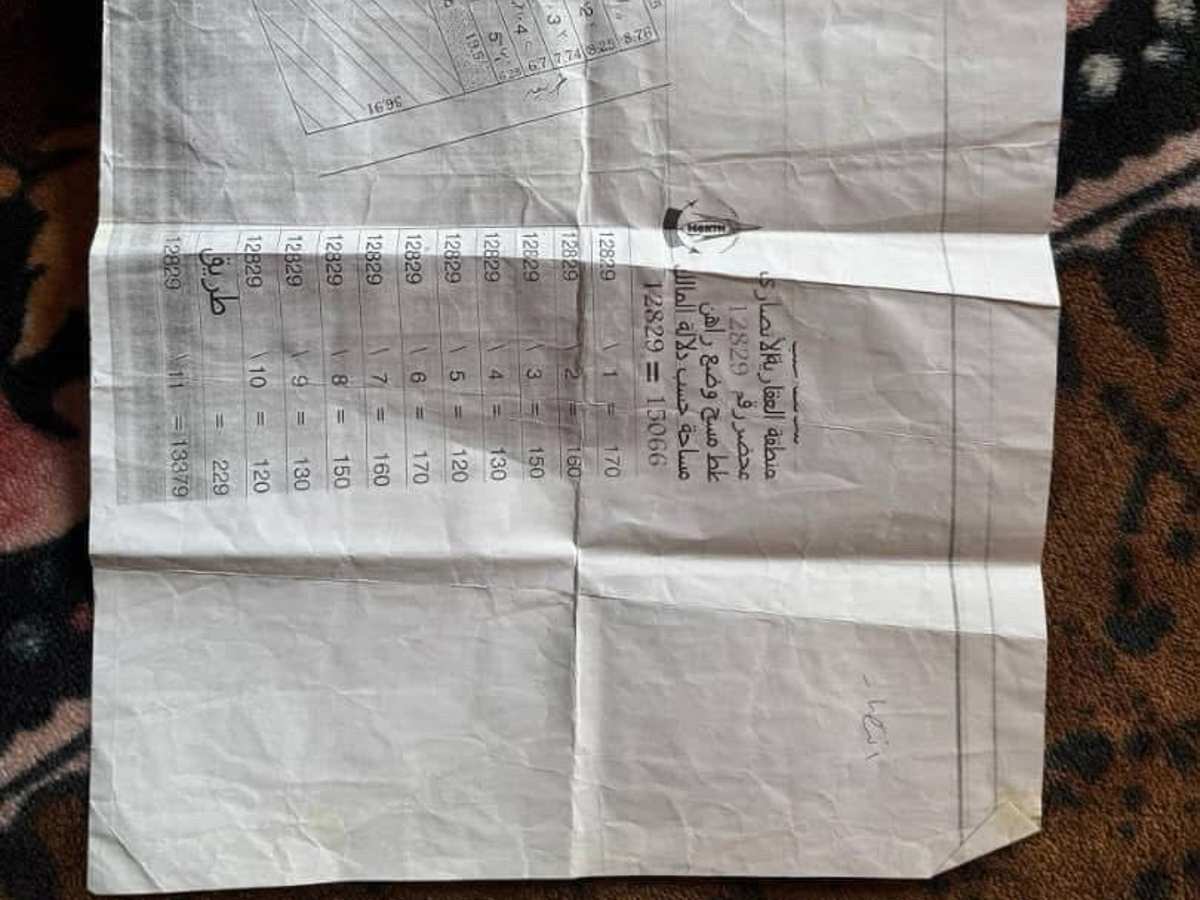 36.91
19.5
5
4
3
6.7
7.74
8.25
8.76
NORTH
منطقة العقارية الأنصاري
محضر رقم 12829
مساحة حسب دلالة المالك
12829 = 15066
12829 \ 1 = 170
12829 \ 2 = 160
12829 \ 3 = 150
12829 \ 4 = 130
12829 \ 5 = 120
12829 \ 6 = 170
12829 \ 7 = 160
12829 \ 8 = 150
12829 \ 9 = 130
12829 \ 10 = 120
طريق = 229
12829 \ 11 = 13379